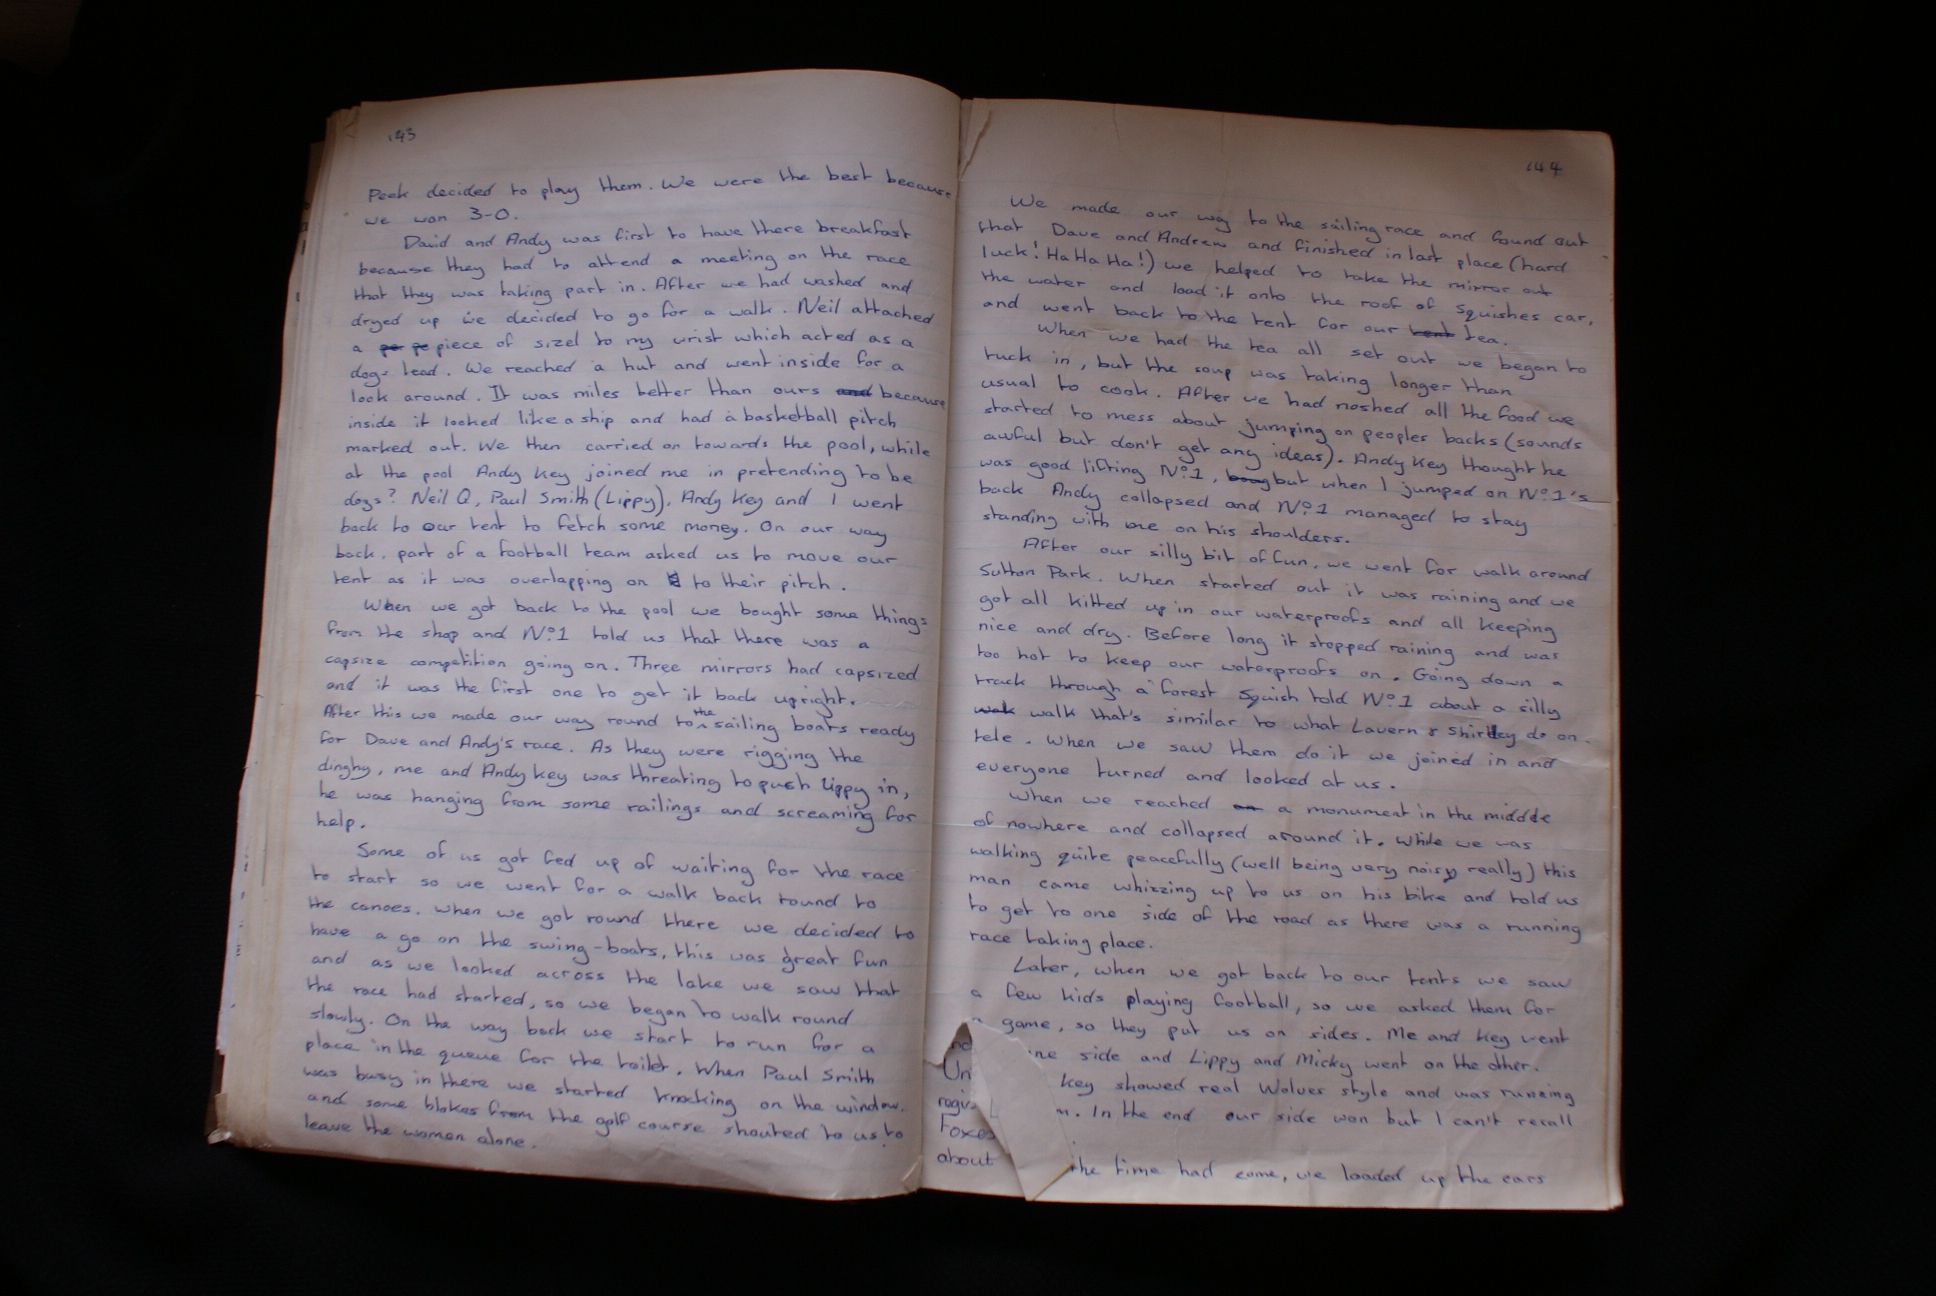 143
Peek decided to play them. We were the best because
we won 3-0.
David and Andy was first to have there breakfast
because they had to attend a meeting on the race
that they was taking part in. After we had washed and
dryed up we decided to go for a walk. Neil attached
a piece of sizel to my wrist which acted as a
dogs lead. We reached a hut and went inside for a
look around. It was miles better than ours and because
inside it looked like a ship and had a basketball pitch
marked out. We then carried on towards the pool, while
at the pool Andy Key joined me in pretending to be
dogs? Neil Q, Paul Smith (Lippy), Andy Key and I went
back to our tent to fetch some money. On our way
back, part of a football team asked us to move our
tent as it was overlapping on to their pitch.
When we got back to the pool we bought some things
from the shop and Nº1 told us that there was a
capsize competition going on. Three mirrors had capsized
and it was the first one to get it back upright.
After this we made our way round to the sailing boats ready
for Dave and Andy's race. As they were rigging the
dinghy, me and Andy Key was threating to push Lippy in,
he was hanging from some railings and screaming for
help.
Some of us got fed up of waiting for the race
to start so we went for a walk back round to
the canoes. When we got round there we decided to
have a go on the swing-boats, this was great fun
and as we looked across the lake we saw that
the race had started, so we began to walk round
slowly. On the way back we start to run for a
place in the queue for the toilet. When Paul Smith
was busy in there we started knocking on the window,
and some blokes from the golf course shouted to us to
leave the women alone.
144
We made our way to the sailing race and found out
that Dave and Andrew and finished in last place (hard
luck! Ha Ha Ha!) we helped to take the mirror out
the water and load it onto the roof of Squishes car,
and went back to the tent for our tent tea.
When we had the tea all set out we began to
tuck in, but the soup was taking longer than
usual to cook. After we had noshed all the food we
started to mess about jumping on peoples backs (sounds
awful but don't get any ideas). Andy Key thought he
was good lifting Nº1, but when I jumped on Nº1's
back Andy collapsed and Nº1 managed to stay
standing with me on his shoulders.
After our silly bit of fun, we went for walk around
Sutton Park. When started out it was raining and we
got all kitted up in our waterproofs and all keeping
nice and dry. Before long it stopped raining and was
too hot to keep our waterproofs on. Going down a
track through a forest Squish told Nº1 about a silly
walk that's similar to what Lavern & Shirley do on
tele. When we saw them do it we joined in and
everyone turned and looked at us.
When we reached a monument in the middle
of nowhere and collapsed around it. While we was
walking quite peacefully (well being very noisy really) this
man came whizzing up to us on his bike and told us
to get to one side of the road as there was a running
race taking place.
Later, when we got back to our tents we saw
a few kids playing football, so we asked them for
a game, so they put us on sides. Me and Key went
side and Lippy and Micky went on the other.
Key showed real Wolves style and was running
In the end our side won but I can't recall
the time had come, we loaded up the cars
Un
regis
Foxes
about